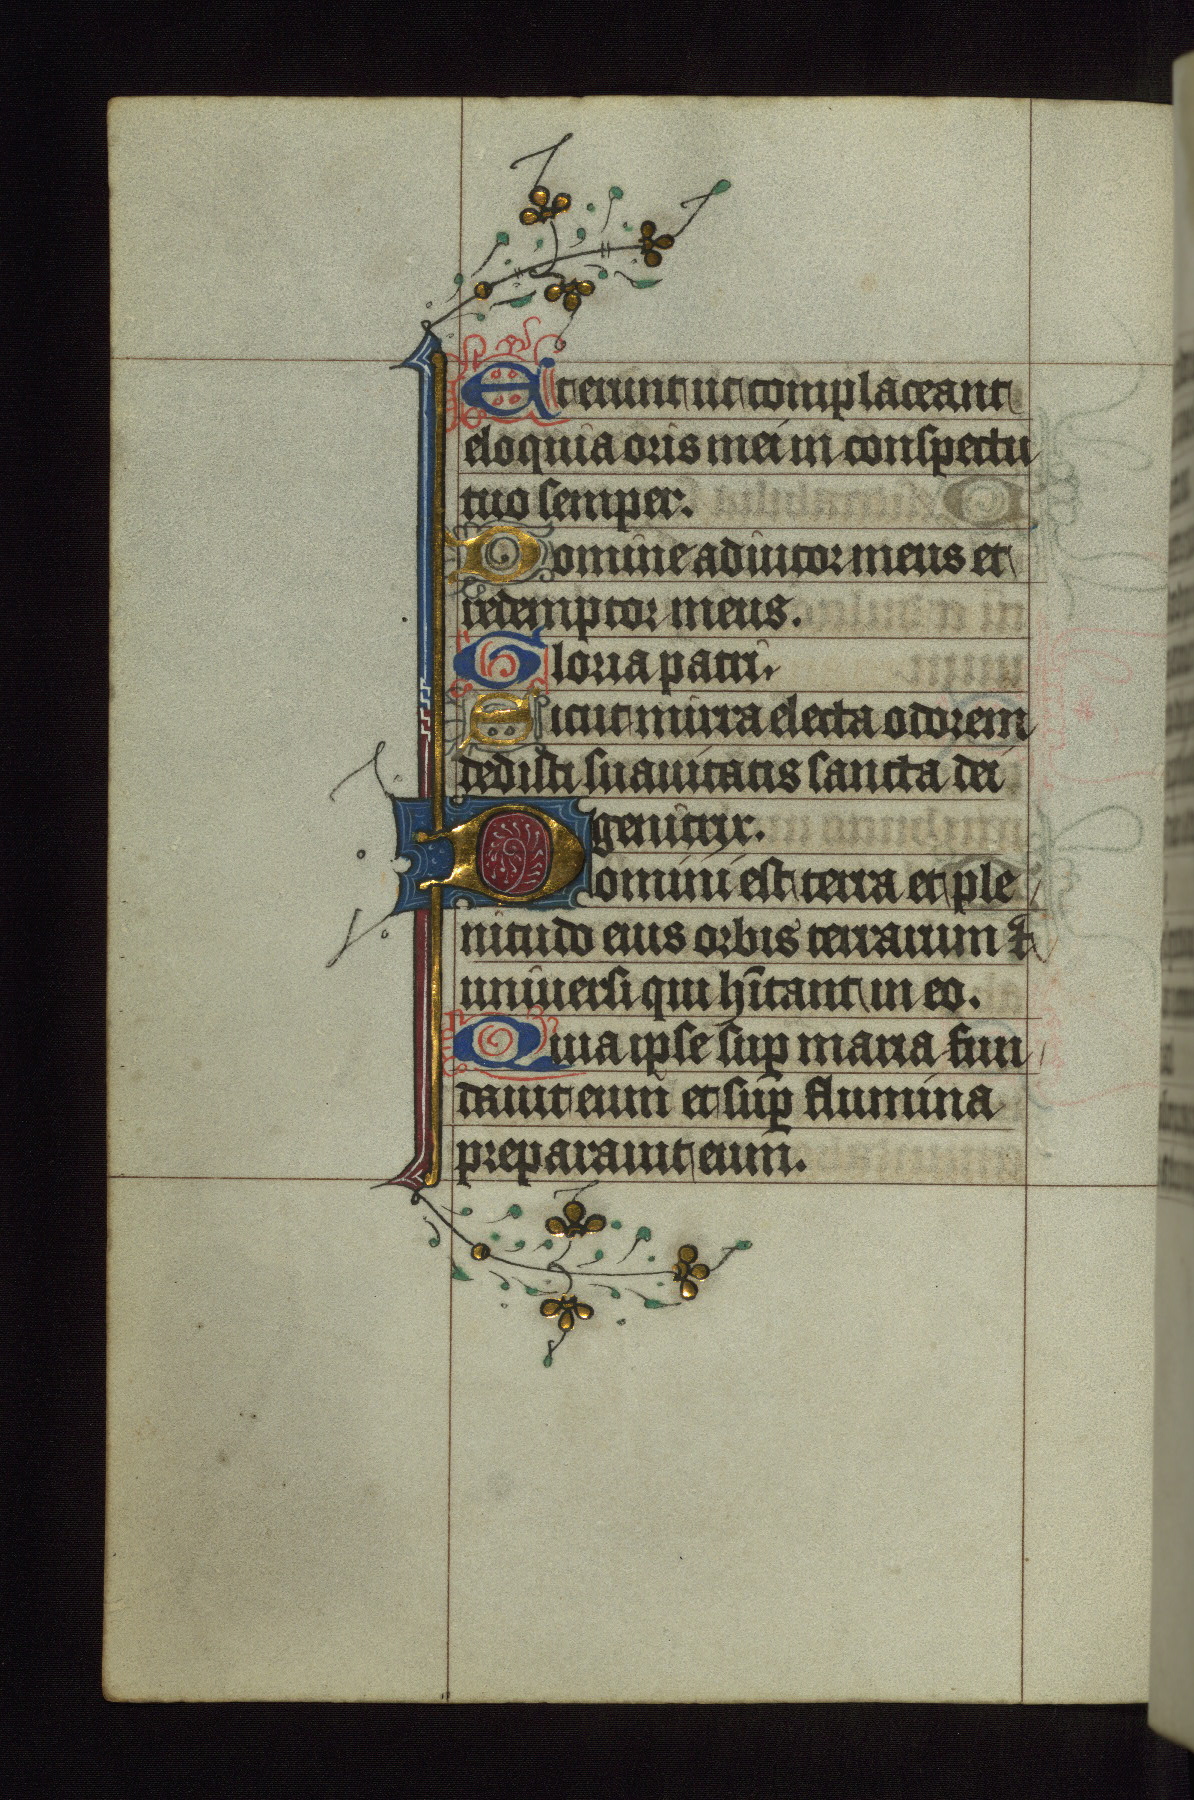 Et erunt ut complaceant
eloquia oris mei in conspectu
tuo semper.
Domine adiutor meus et
redemptor meus.
Gloria patri.
Sicut mirra electa odorem
dedisti suauitatis sancta dei
genitrix.
Domini est terra et ple
nitudo eius orbis terrarum ⁊
uniuersi qui hītant in eo.
Quia ipse sup̲ maria fun
dauit eum et sup̲ flumina
preparauit eum.